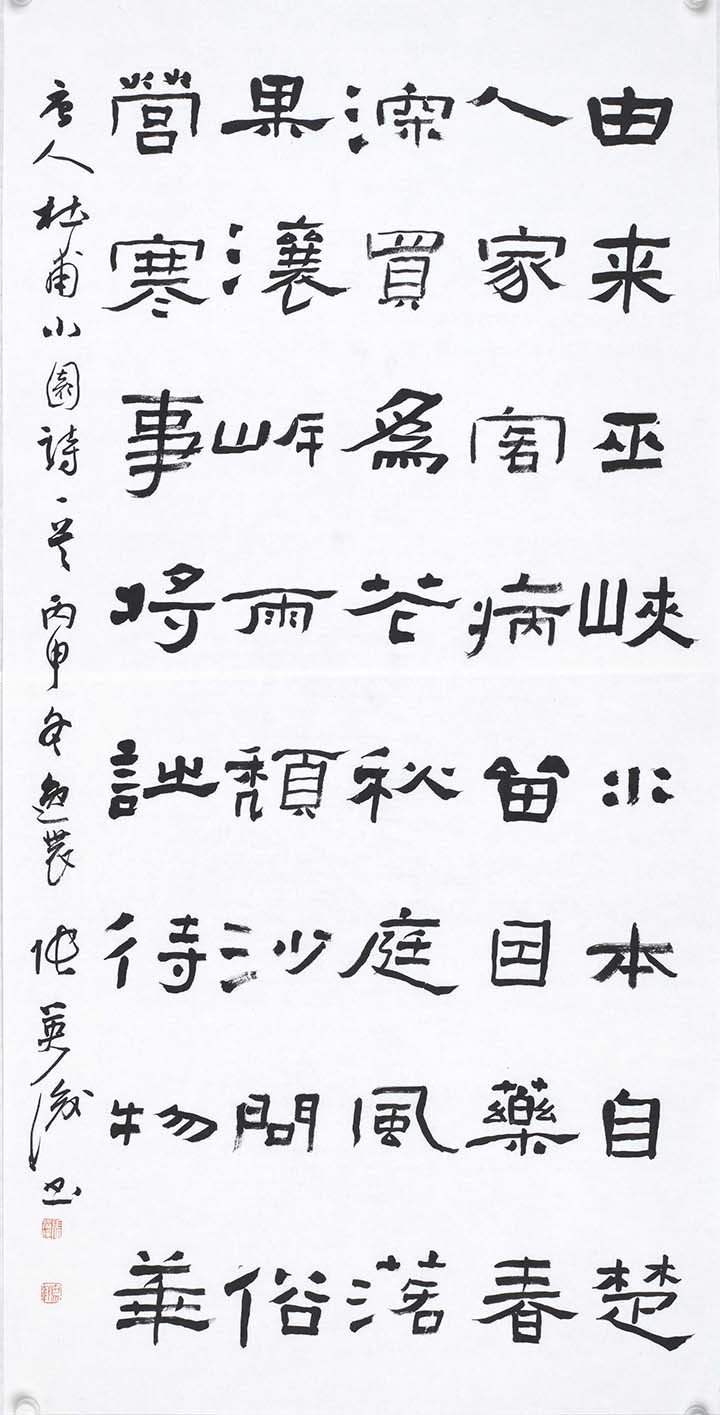 由来巫峽水本自楚
人家客病留因藥春
深買爲花秋庭風落
果瀼岸雨頹沙問俗
營寒事將詩待物華
唐人杜甫小園詩一首丙申冬逸農張英书